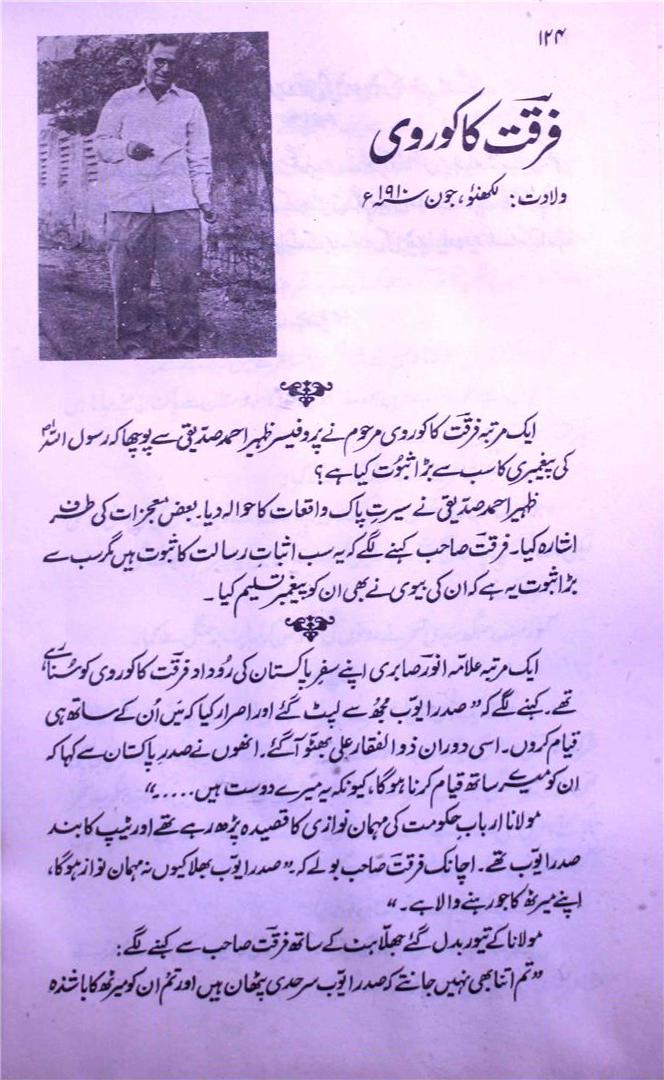 ۱۲۴
فرقتؔ کاکوروی
ولادت: لکھنؤ، جون سنہ ۱۹۱۰ء
ایک مرتبہ فرقتؔ کاکوروی مرحوم نے پروفیسر ظہیر احمد صدیقی سے پوچھا کہ رسول اللہؐ
کی پیغمبری کا سب سے بڑا ثبوُت کیا ہے؟
ظہیر احمد صدیقی نے سیرتِ پاک واقعات کا حوالہ دیا۔ بعض معجزات کی طرف
اشارہ کیا۔ فرقتؔ صاحب کہنے لگے کہ یہ سب اثباتِ رسالت کا ثبوت ہیں مگر سب سے
بڑا ثبوت یہ ہے کہ ان کی بیوی نے بھی ان کو پیغمبر تسلیم کیا۔
ایک مرتبہ علامہ انورؔ صابری اپنے سفرِ پاکستان کی رُوداد فرقتؔ کاکوروی کو سُنا رہے
تھے۔ کہنے لگے کہ ”صدر ایوّب مجھُ سے لپٹ گئے اور اصرار کیا کہ میَں اُن کے ساتھ ہی
قیام کروں۔ اسی دوران ذوالفقار علی بھٹّو آگئے۔ انھوں نے صدرِ پاکستان سے کہا کہ
ان کو میرے ساتھ قیام کرنا ہوگا، کیونکہ یہ میرے دوست ہیں . . . . ۔“
مولانا اربابِ حکومت کی مہمان نوازی کا قصیدہ پڑھ رہے تھے اور ٹیپ کا بند
صدر ایوّب تھے۔ اچانک فرقتؔ صاحب بولے کہ ”صدر ایوّب بھلا کیوں نہ مہمان نواز ہوگا،
اپنے میرٹھ کا جو رہنے والا ہے۔“
مولانا کے تیور بدل گئے جھلّاہٹ کے ساتھ فرقتؔ صاحب سے کہنے لگے:
”تم اتنا بھی نہیں جانتے کہ صدر ایوّب سرحدی پٹھان ہیں اور تمُ ان کو میرٹھ کا باشندہ